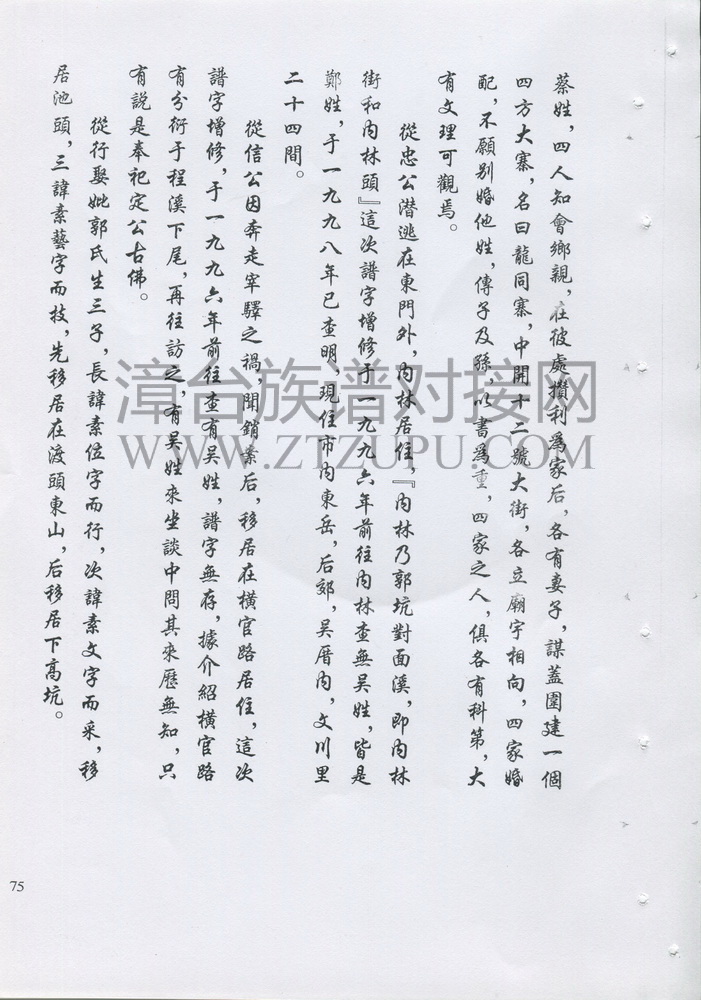 蔡姓，四人知會鄉親，在彼處攢利為家后，各有妻子，謀蓋圍建一個
四方大寨，名曰龍同寨，中開十二號大街，各立廟宇相向，四家婚
配，不願别婚他姓，傳子及孫，以書為重，四家之人，俱各有科第，大
有文理可觀焉。
從忠公潜逃在東門外，内林居住，『内林乃郭坑對面溪，即内林
街和内林頭』這次譜字增修于一九九六年前往内林查無吴姓，皆是
鄭姓，于一九九八年已查明，現住市内東岳，后郊，吴厝内，文川里
二十四間。
從信公因奔走宰驛之禍，聞銷案后，移居在橫官路居住，這次
譜字增修，于一九九六年前往查有吴姓，譜字無存，據介紹橫官路
有分衍于程溪下尾，再往訪之，有吴姓來坐談中問其來歷無知，只
有説是奉祀定公古佛。
從行娶妣郭氏生三子，長諱素位字而行，次諱素文字而采，移
居池頭，三諱素藝字而技，先移居在渡頭東山，后移居下高坑。
75
漳台族谱对接网
WWW.ZTZUPU.COM